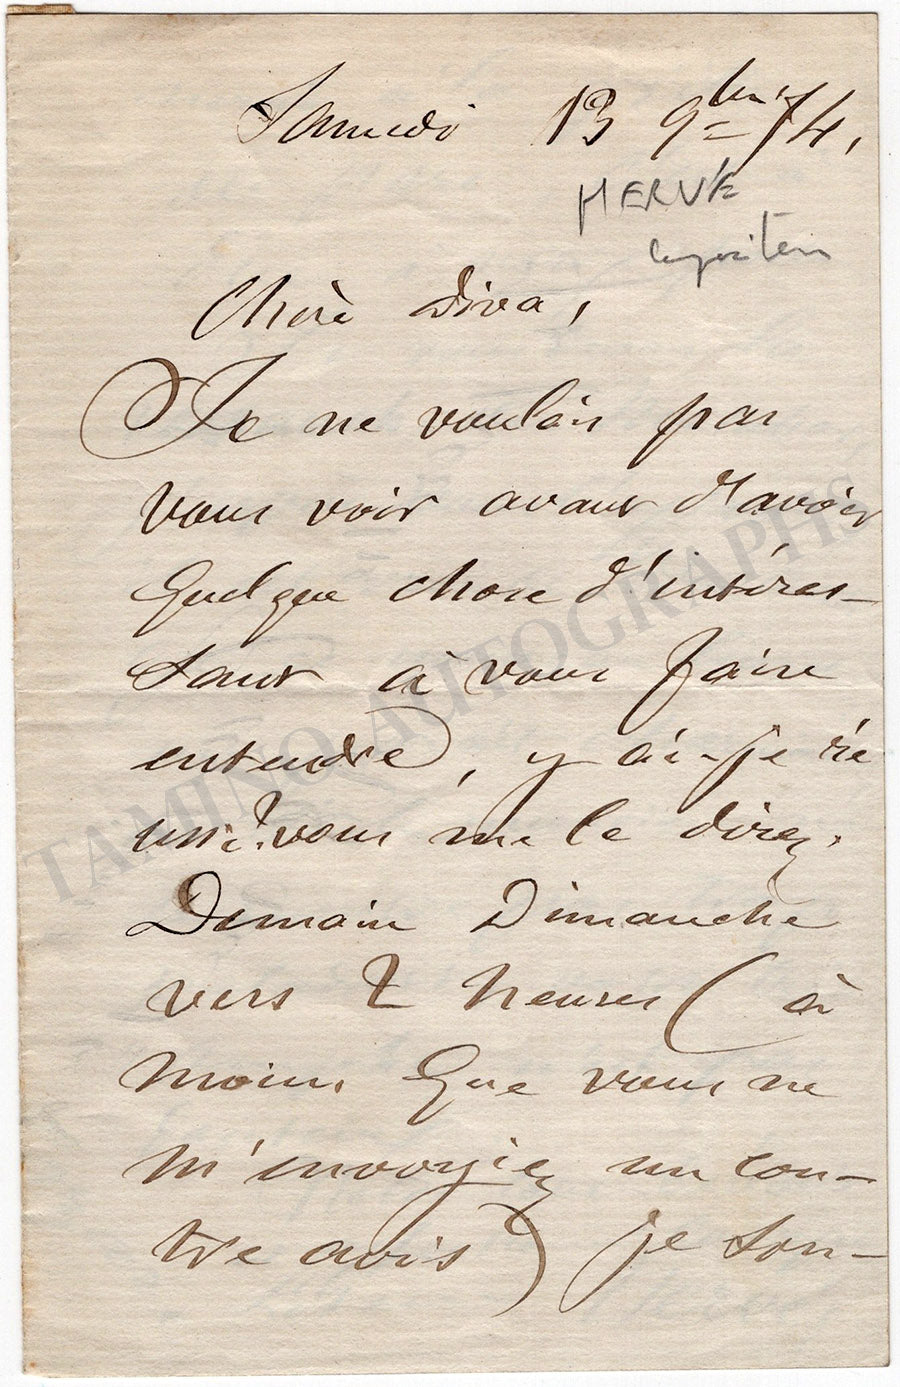 Samedi 13 9bre 74,
HERVÉ
compositeur
Chère Diva,
Je ne voulais pas
vous voir avant d'avoir
quelque chose d'intéres-
sant à vous faire
entendre, y ai-je ré
ussi? vous me le direz.
Demain Dimanche
vers 2 heures (à
moins que vous ne
m'envoyiez un con-
tre avis) je son-
TAMINO AUTOGRAPHS